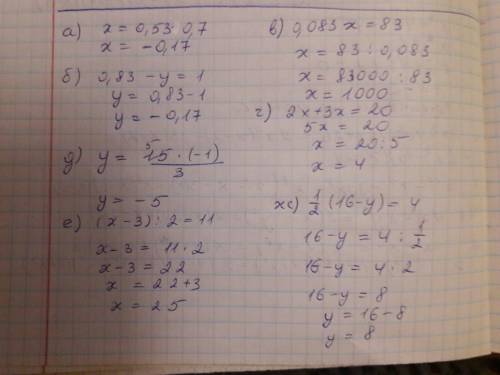 а) x = 0,53 0,7
x = -0,17
б) 0,83 - y = 1
y = 0,83-1
y = -0,17
д) y = 15 · (-1) / 3
5
y = -5
е) (x-3) : 2 = 11
x-3 = 11 · 2
x-3 = 22
x = 22+3
x = 25
в) 0,083 x = 83
x = 83 : 0,083
x = 83000 : 83
x = 1000
г) 2x+3x = 20
5x = 20
x = 20:5
x = 4
ж) 1/2 (16-y) = 4
16-y = 4 : 1/2
16-y = 4 · 2
16-y = 8
y = 16-8
y = 8